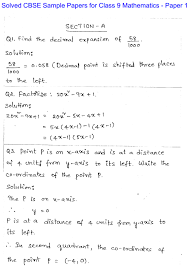 Solved CBSE Sample Papers for Class 9 Mathematics - Paper 1
SECTION-A
Q1. Find the decimal expansion of 58/1000
Solution:
58/1000 = 0.058 (Decimal point is shifted three places
to the left.
Q2. Factorise: 20x²-9x+1.
Solution:
20x²-9x+1 = 20x²-5x-4x+1
= 5x(4x-1)-1(4x-1)
= (4x-1)(5x-1)
Q3. Point P is on x-axis and is at a distance
of 4 units from y-axis to its left. Write the
co-ordinates of the point P.
Solution:
The P is on x-axis
∴ y=0
P is at a distance of 4 units from y-axis to
its left.
∴ In second quadrant, the co-ordinates of
the point P = (-4,0).